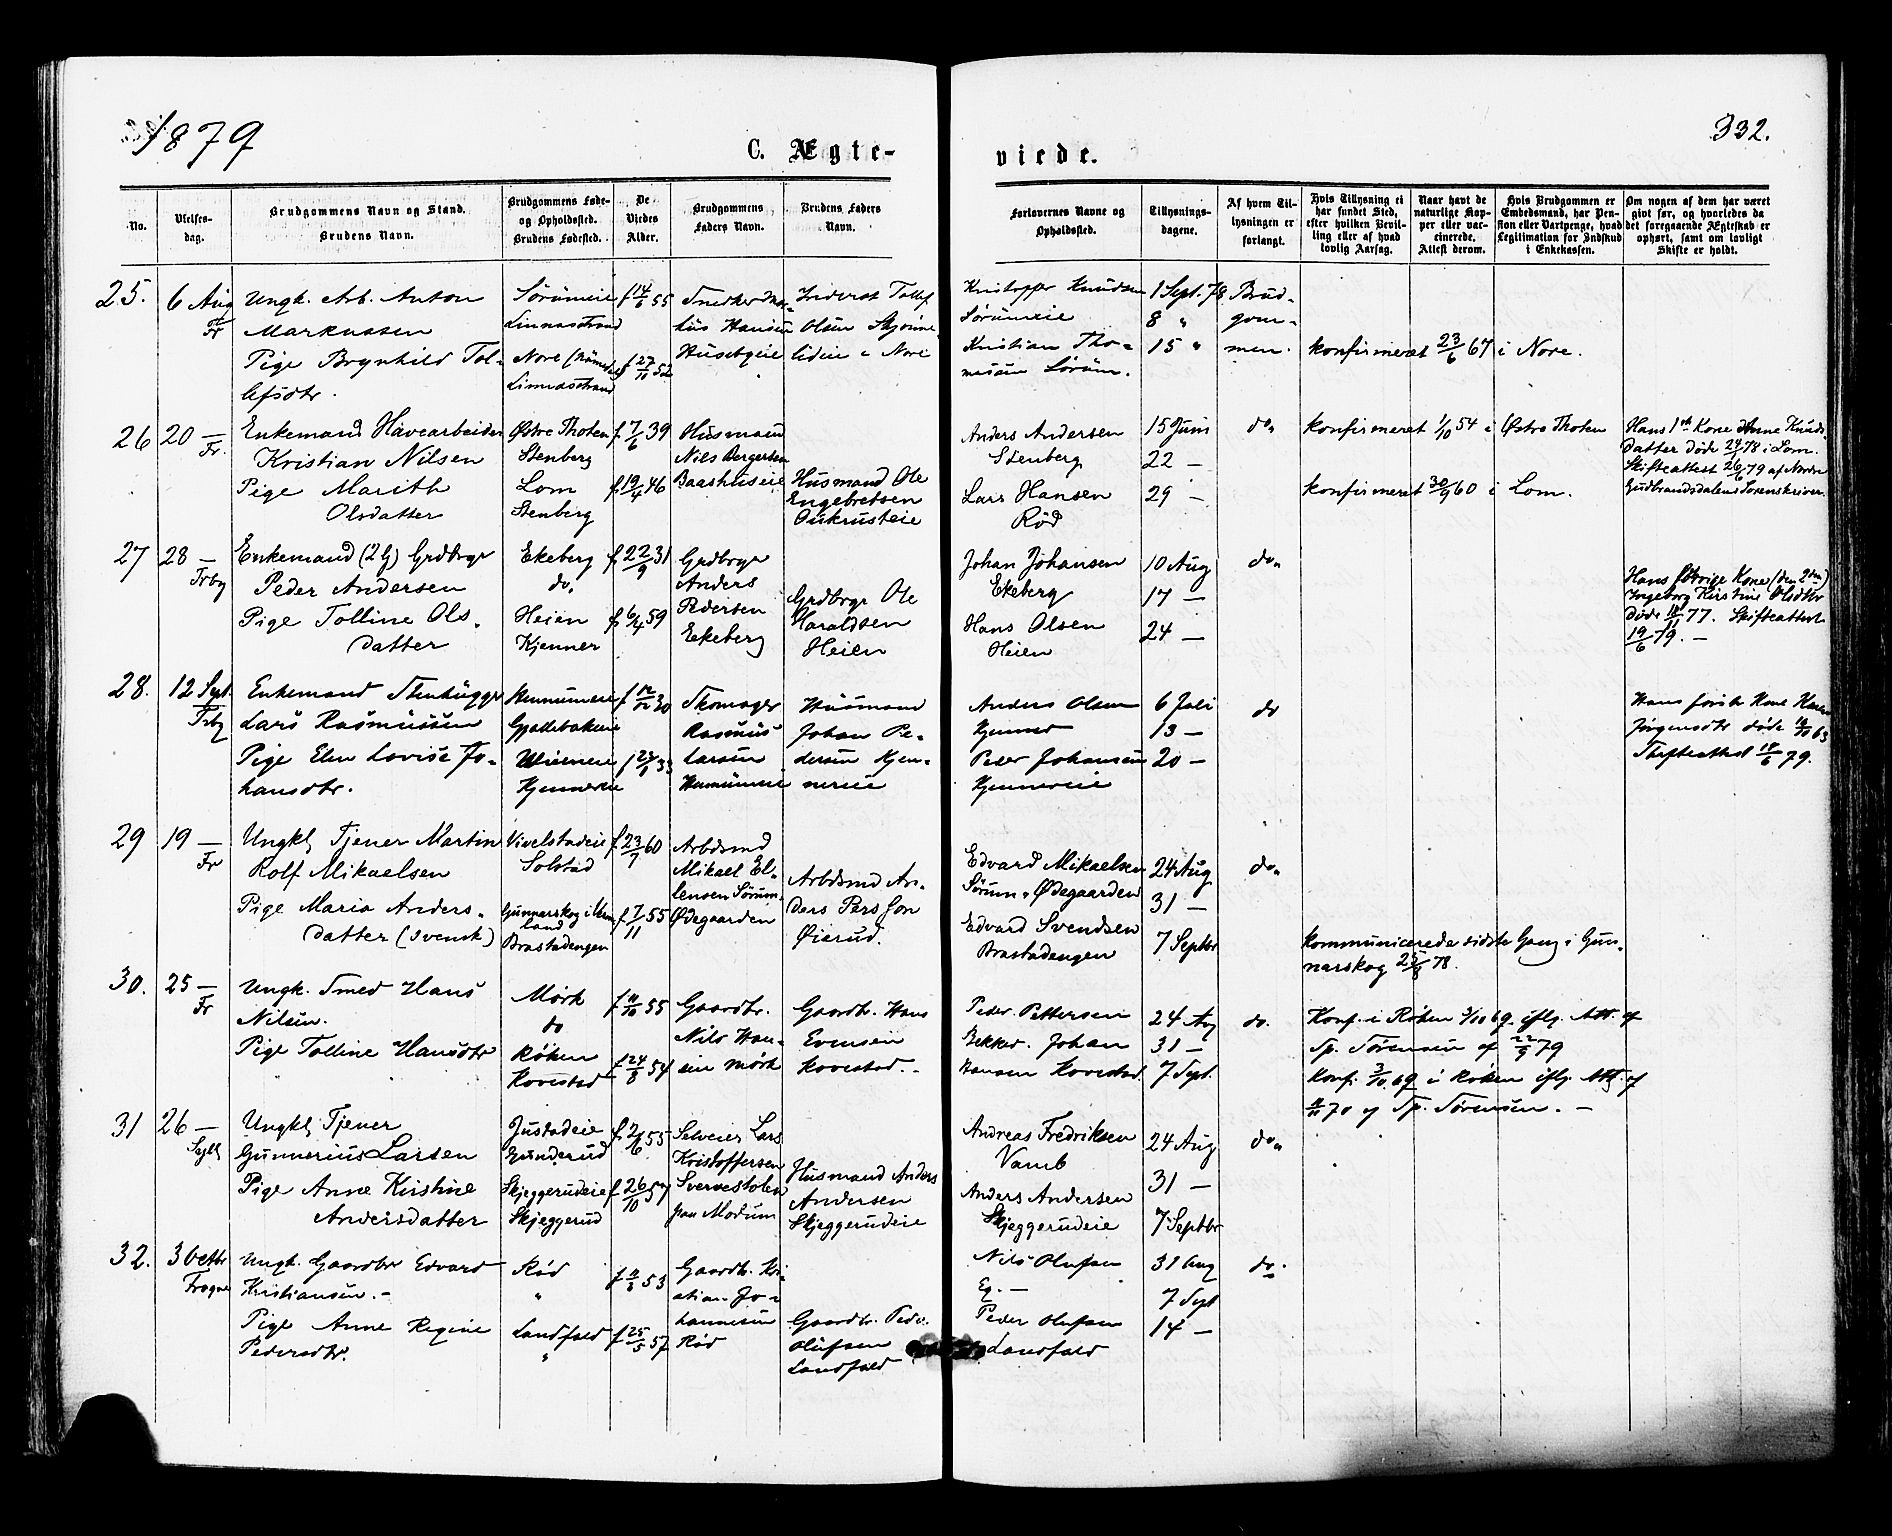 1879
332.
C. Ægte-
viede.
No.
Vielses-
dag.
Brudgommens Navn og Stand.
Brudens Navn.
Brudgommens Føde-
og Opholdssted.
Brudens Fødested.
De
Viedes
Alder.
Brudgommens
Faders Navn.
Brudens Faders
Navn.
Forlovernes Navne og
Opholdssted.
Tillysnings-
dagene.
Af hvem Til-
lysningen er
forlangt.
Hvis Tillysning ei
har fundet Sted,
efter hvilken Bevil-
ling eller af hvad
lovlig Aarsag.
Naar havt de
naturlige Kop-
per eller vac-
cinerede.
Attest derom.
Hvis Brudgommen er
Embedsmand, har Pen-
sion eller Vartpenge, hvad
Legitimation for Indskud
i Enkekassen.
Om nogen af dem har været
givt før, og hvorledes da
det foregaaende Ægteskab er
ophørt, samt om lovligt
Skifte er holdt.
25.
6 Aug
Fr
Ungk. Arb. Anton
Markussen
Pige Brynhild Tol-
lefsdtr.
Sørumeie
Linnesstrand
Nore
Linnesstrand
f 14/6 55
f 27/11 52
Hansen
Husebyeie
Tollef
Olsen
i Nore
Kristoffer Knudsen
Sørumeie
Kristian Tho-
mesen Sørum.
1 Sept. 78
8 "
15 "
Brud-
gom-
men.
konfirmeret 23/6 67 i Nore.
26
20 —
Fr.
Enkemand Havearbeider
Kristian Nilsen
Pige Marith
Olsdatter
Østre Thoten
Stenberg
Lom
Stenberg
f. 7/6 39
f. 19/4 46
Husmand
Nils Bergersen
Baashuseie
Husmand Ole
Engebretsen
Anders Andersen
Stenberg
Lars Hansen
Rød
15 Juni
22 —
29 —
do.
konfirmeret 1/10 54 i Østre Thoten
konfirmeret 30/9 60 i Lom.
Hans 1ste Kone Anne Knuds-
datter døde 24/1 78 i Lom.
Skifteattest 26/6 79 af Nordre
Gudbrandsdalens Sorenskriver.
27
28 —
Frbg
Enkemand (2G) Grdbrgr
Peder Andersen
Pige Tolline Ols.
datter
Ekeberg
do.
Heien
Kjenner
f 22/9 31
f 6/4 59
Grdbrgr
Anders
Pedersen
Ekeberg
Grdbrgr Ole
Haraldsen
Heien
Johan Johansen
Ekeberg
Hans Olsen
Heien
10 Aug
17 —
24 —
do.
Hans forrige Kone (den 2den)
Ingeborg Kirstine Olsdtr
døde 18/11 77. Skifteattest
19/6 79. —
28.
12 Sept.
Frbg
Enkemand Stenhugger
Lars Rasmussen
Pige Elen Lovise Jo-
hansdtr.
Gjellebækeie
Kjennereie
Skomager
Rasmus
Larsen
Husmand
Johan Pe-
dersen Kjen-
nereie
Anders Olsen
Kjenner
Peder Johansen
Kjennereie
6 Juli
13 —
20 —
do
Hans første Kone Karen
Jørgensdtr døde 63
Skifteattest 18/6 79.
29
19 —
Fr
Ungkl Tjener Martin
Rolf Mikaelsen
Pige Maria Anders.
datter (svensk)
Vivelstadeie
Solstad
Gunnarskog i Verm
land
Brastadengen
f. 23/7 60
f. 7/11 55
Arbdsmd
Mikael El-
lensen Sørum-
Ødegaarden
Arbdsmd An-
ders Persson
Øierud.
Edvard Mikaelsen
Sørum-Ødegaarden
Edvard Svendsen
Brastadengen
24 Aug
31 —
7 Septbr
do.
Kommunicerede sidste Gang i Gun-
narskog 25/8 78.
30.
25 —
Fr
Ungk. Smed Hans
Nilsen.
Pige Tolline Hansdtr
Mørk
do
Røken
Hovestad
f 11/10 55
f 24/8 54
Gaardbr.
Nils Han-
sen Mørk
Gaardb. Hans
Evensen
Hovestad. -
Peder Pettersen
Johan
Hansen Hovestad.
24 Aug
31 —
7 Sept.
do.
Konf. i Røken 3/10 69 iflg. Att. af
Sp. Sørensen af 22/9 79
Konf. 3/10 69 i Røken iflg. Att. af
70 af Sp. Sørensen. —
31
26 —
Ungkl Tjener
Gunnerius Larsen
Pige Anne Kirstine
Andersdatter
Justadeie
Gunderud
Skjeggerudeie
Skjeggerud
f. 2/6 55
f 26/10 57
Selveier Lars
Kristoffersen
paa Modum
Husmand Anders
Andersen
Skjeggerudeie
Andreas Fredriksen
Vamb
Anders Andersen
Skjeggerudeie
24 Aug
31 —
7 Septbr
do.
32.
3 Octbr
Frogner
Ungk. Gaardbr Edvard
Kristiansen. -
Pige Anne Regine
Pedersdtr.
Rød
"
Landfald
"
f 11/3 53
f 25/5 57
Gaardb. Kri-
stian Jo-
hannesen
Rød
Gaardbr. Peder
Olufsen
Landfald
Nils Olufsen
Eg. —
Peder Olufsen
Landfald
31 Aug
7 Sept
14 —
do.